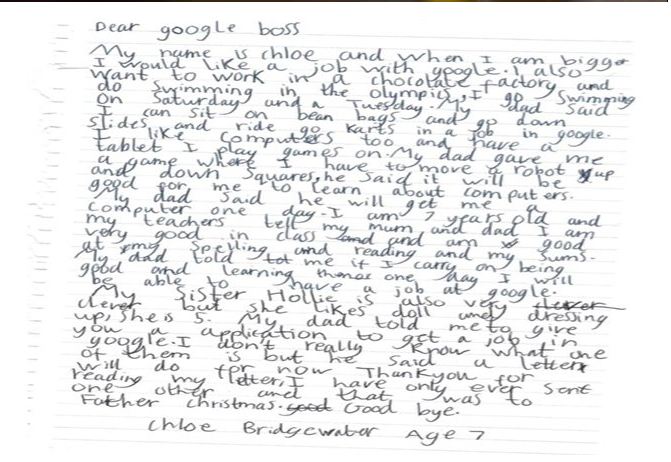 Dear google boss
My name is chloe and when I am bigger
I would like a job with google. I also
want to work in a chocolate factory and
do swimming in the olympics. I go swimming
on Saturday and a Tuesday. My dad said
I can sit on bean bags and go down
slides and ride go karts in a job in google.
I like computers too and have a
tablet I play games on. My dad gave me
a game where I have to move a robot up
and down squares, he said it will be
good for me to learn about computers.
My dad said he will get me a
computer one day. I am 7 years old and
my teachers tell my mum and dad I am
very good in class and am good
at my spelling and reading and my sums.
My dad told me if I carry on being
good and learning one day I will
be able to have a job at google.
My sister Hollie is also very
clever but she likes doll and dressing
up, she is 5. My dad told me to give
you a application to get a job in
google. I don't really know what one
of them is but he said a letter
will do for now Thankyou for
reading my letter, I have only ever sent
one other and that was to
Father christmas. Good bye.
Chloe Bridgewater Age 7